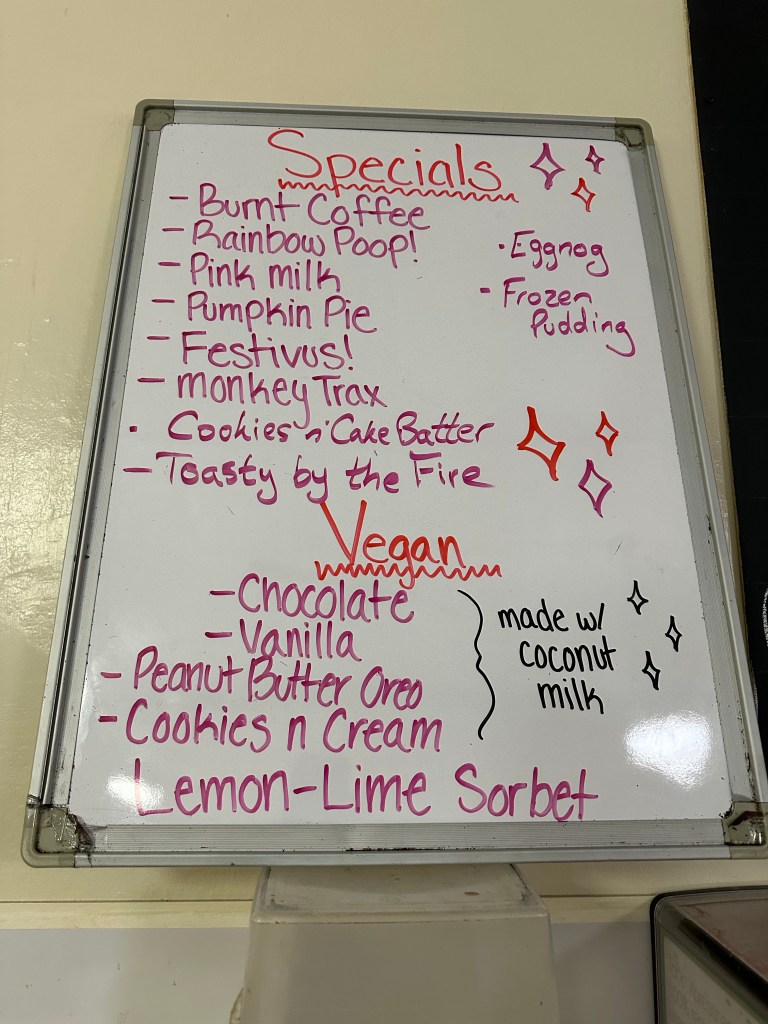 Specials
- Burnt Coffee
- Rainbow Poop!
- Pink milk
- Pumpkin Pie
- Festivus!
- monkey Trax
· Cookies n' Cake Batter
- Toasty by the Fire
· Eggnog
- Frozen
Pudding
Vegan
- Chocolate
- Vanilla
- Peanut Butter Oreo
- Cookies n Cream
made w/
coconut
milk
Lemon-Lime Sorbet